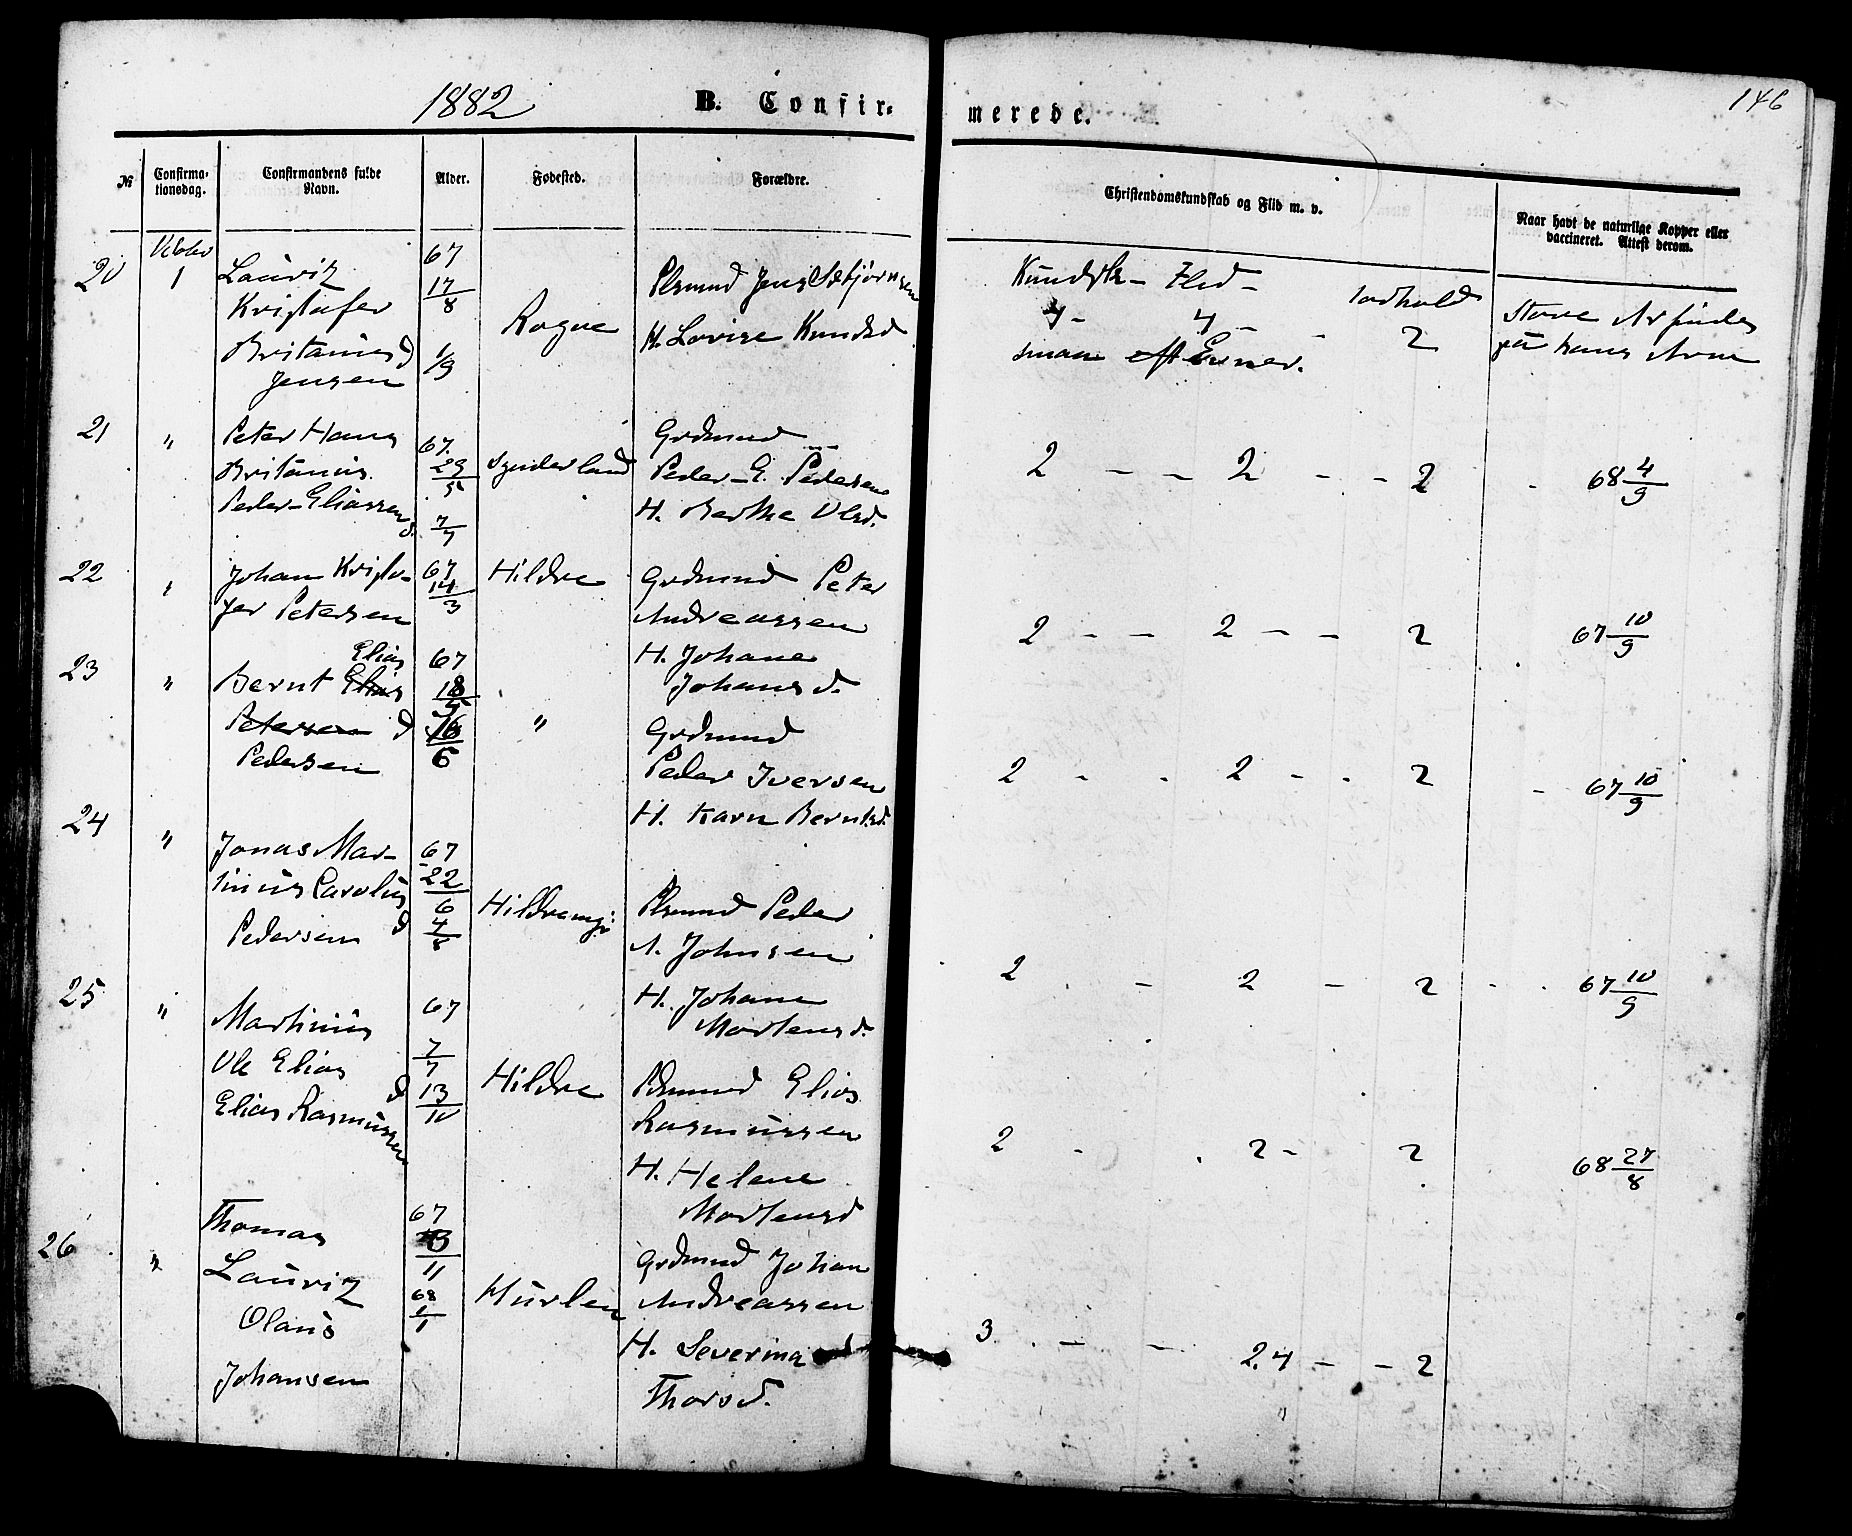 1882
B. Confir-
merede.
146
№
Confirma-
tionsdag.
Confirmandens fulde
Navn.
Alder.
Fødested.
Forældre.
Christendomskundskab og Flid m. v.
Naar havt de naturlige Kopper eller
vaccineret. Attest derom.
20
Oktober
1
Lauritz
Kristofer
Britanius d
Jensen
67
17/8
1/9
Rogne
Plsmnd Jens Asbjørnsen
H. Lovise Knudsd
Kundsk - Flid - Forhold
4 - 4 - - 2
smaa Evner.
Store Ar findes
på hans Arm
21
"
Peter Hans
Britanius
Peder-Eliassen
d.
67.
29/5
7/7
Synderland
Grdmnd
Peder-E. Pedersen
H. Berthe Olsd.
2 - - 2 - - 2
68 4/9
22
"
Johan Kristo-
fer Petersen
67
14/3
Hildre
Grdmnd Peter
Andreassen
H. Johane
Johansd.
2 - - 2 - - 2
67 10/9
23
"
Elias
Bernt Elias
Petersen d
Pedersen
67
18/5
16/6
"
Grdmnd
Peder Iversen
H. Karn Berntsd.
2 - - 2 - - 2
67 10/9
24
"
Jonas Mar-
tinus Carolus
Pedersen d
67
22/6
4/8
Hildremyr
Plsmnd Peder
A. Johnsen
H. Johane
Mortensd.
2 - - 2 - 2
67 10/9
25
"
Martinus
Ole Elias
Elias Rasmussen
d
67
7/7
13/10
Hildre
Plsmnd Elias
Rasmussen
H. Helene
Mortensd
2 - . 2 - 2
68 27/8
26
"
Thomas
Lauritz
Olaus
Johansen
67
13/11
68
1/1
Hurlen
Grdmnd Johan
Andreassen
H. Severina
Thorsd.
3 . - - 2.4 - - 2
"